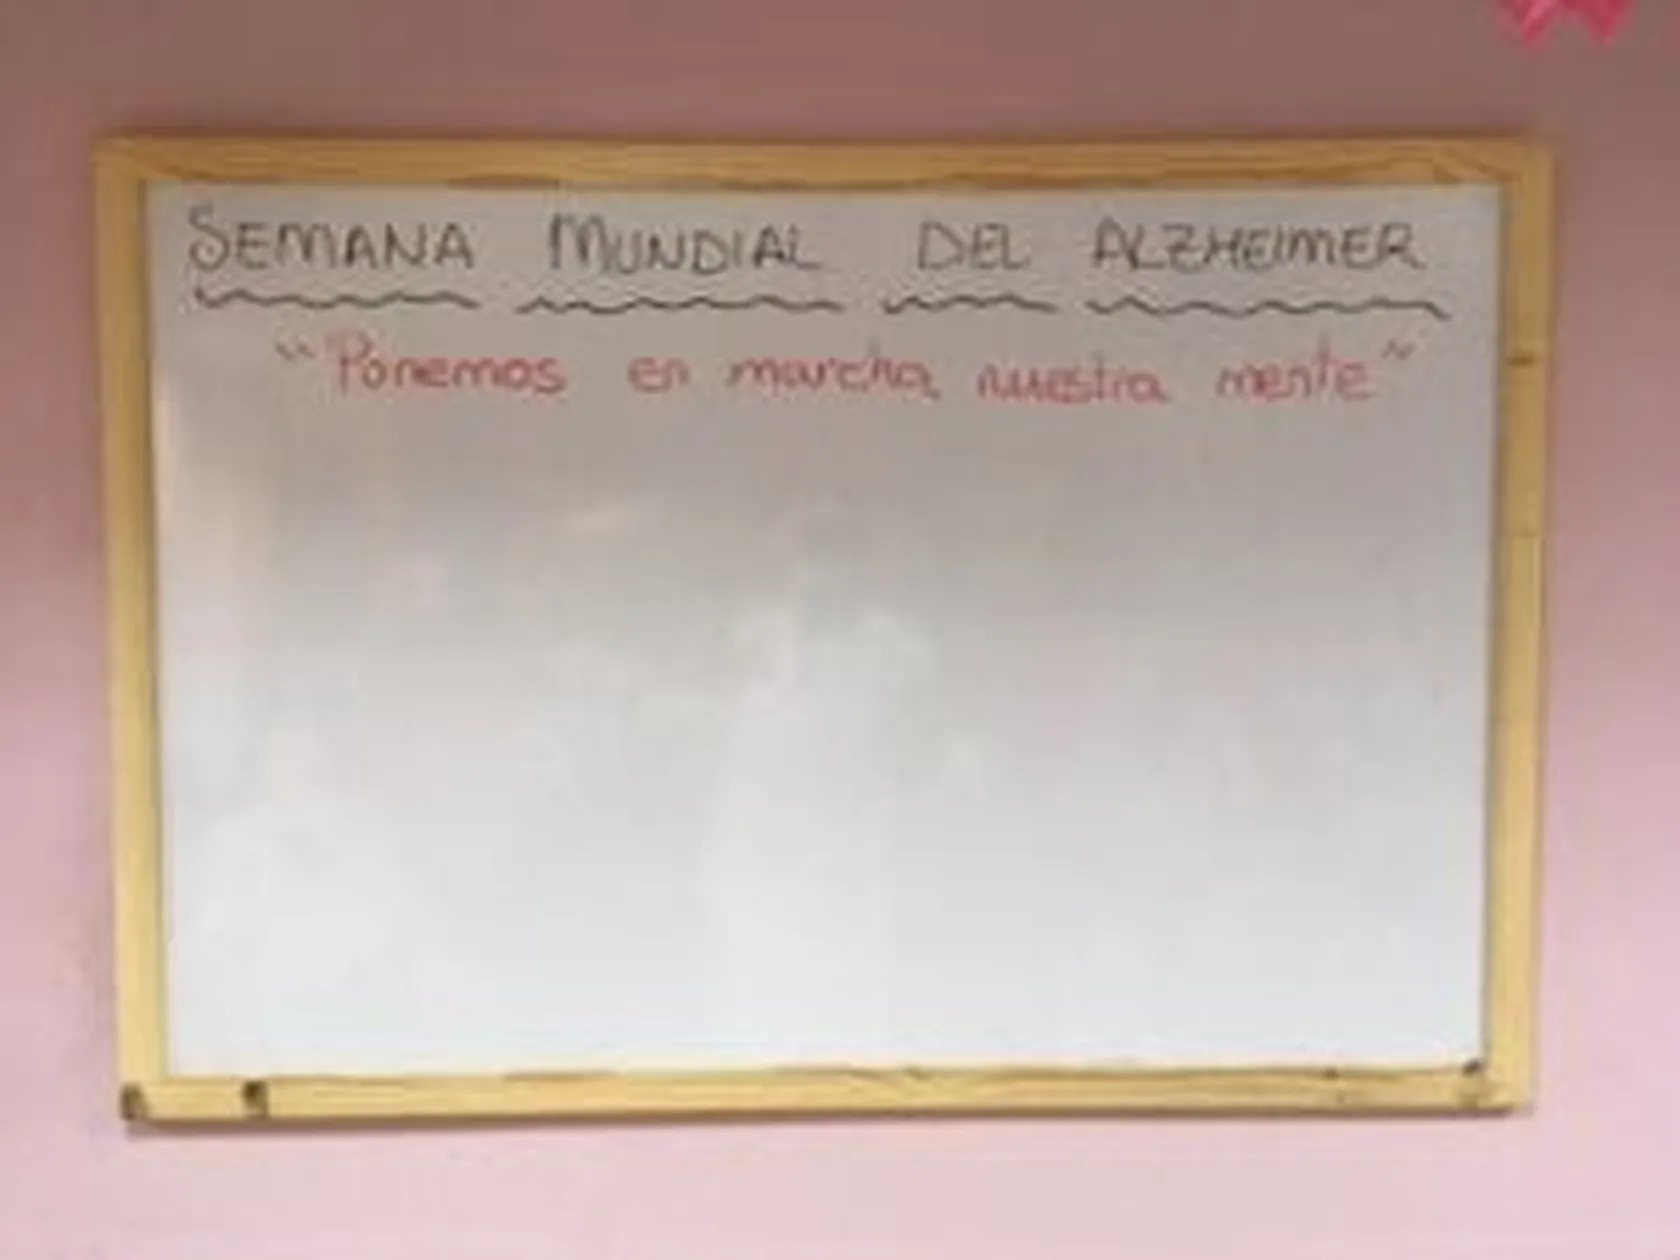 SEMANA MUNDIAL DEL ALZHEIMER
"Ponemos en marcha nuestra mente"